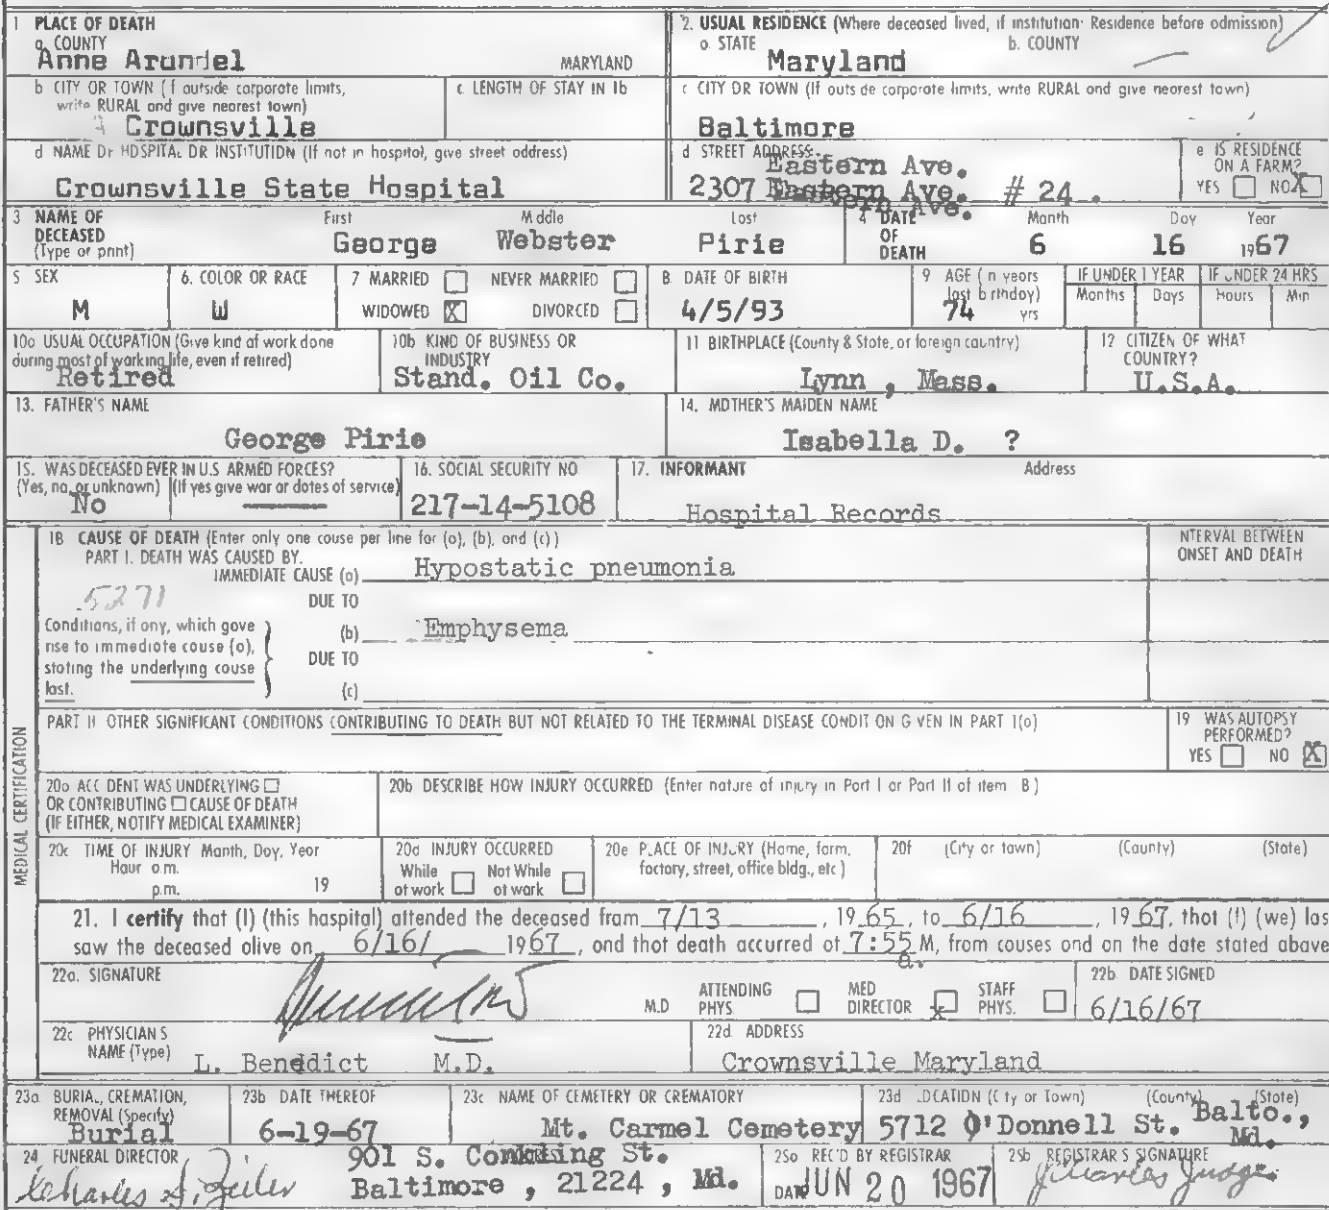 1 PLACE OF DEATH
a. COUNTY
Anne Arundel
MARYLAND
2. USUAL RESIDENCE (Where deceased lived, if institution: Residence before admission)
a. STATE
Maryland
b. COUNTY
b CITY OR TOWN (f outside corporate limits, write RURAL and give nearest town)
Crownsville
c. LENGTH OF STAY IN 1b
c CITY OR TOWN (If outs de corporate limits, write RURAL and give nearest town)
Baltimore
d NAME Dr HOSPITAL OR INSTITUTION (If not in hospital, give street address)
Crownsville State Hospital
d STREET ADDRESS
Eastern Ave.
2307 Eastern Ave. # 24 .
e IS RESIDENCE ON A FARM?
YES NO X
3 NAME OF DECEASED (Type or print)
First
George
M ddle
Webster
Last
Pirie
4 DATE OF DEATH
Month Day Year
6 16 1967
5 SEX
M
6. COLOR OR RACE
W
7 MARRIED NEVER MARRIED
WIDOWED X DIVORCED
8. DATE OF BIRTH
4/5/93
9 AGE ( n years last b rthday)
74 yrs
IF UNDER 1 YEAR
Months Days
IF UNDER 24 HRS
Hours Min
10a USUAL OCCUPATION (Give kind of work done during most of working life, even if retired)
Retired
10b KIND OF BUSINESS OR INDUSTRY
Stand. Oil Co.
11 BIRTHPLACE (County & State, or foreign country)
Lynn , Mass.
12 CITIZEN OF WHAT COUNTRY?
U.S.A.
13. FATHER'S NAME
George Pirie
14. MOTHER'S MAIDEN NAME
Isabella D. ?
15. WAS DECEASED EVER IN U.S ARMED FORCES?
(Yes, no, or unknown) (If yes give war or dates of service)
No
16. SOCIAL SECURITY NO
217-14-5108
17. INFORMANT Address
Hospital Records
MEDICAL CERTIFICATION
18 CAUSE OF DEATH (Enter only one cause per line for (a), (b), and (c))
PART I. DEATH WAS CAUSED BY.
IMMEDIATE CAUSE (a) Hypostatic pneumonia
NTERVAL BETWEEN ONSET AND DEATH
5271
DUE TO
Conditions, if any, which gave rise to immediate cause (a), stating the underlying cause last.
(b) Emphysema
DUE TO
(c)
PART II OTHER SIGNIFICANT CONDITIONS CONTRIBUTING TO DEATH BUT NOT RELATED TO THE TERMINAL DISEASE CONDIT ON G VEN IN PART 1(a)
19 WAS AUTOPSY PERFORMED?
YES NO X
20a ACC DENT WAS UNDERLYING
OR CONTRIBUTING CAUSE OF DEATH
(IF EITHER, NOTIFY MEDICAL EXAMINER)
20b DESCRIBE HOW INJURY OCCURRED (Enter nature of injury in Part I or Part II of item 8)
20c TIME OF INJURY Month, Day, Year
Hour a.m.
p.m. 19
20d INJURY OCCURRED
While at work Not While at work
20e PLACE OF INJURY (Home, farm, factory, street, office bldg., etc)
20f (City or town) (County) (State)
21. I certify that (I) (this hospital) attended the deceased from 7/13 , 1965, to 6/16 , 1967, that (I) (we) las
saw the deceased alive on 6/16/ 1967, and that death occurred at 7:55 a. M, from causes and on the date stated above
22a. SIGNATURE
M.D
ATTENDING PHYS MED DIRECTOR x STAFF PHYS.
22b. DATE SIGNED
6/16/67
22c PHYSICIAN S NAME (Type)
L. Benedict M.D.
22d ADDRESS
Crownsville Maryland
23a BURIAL, CREMATION, REMOVAL (Specify)
Burial
23b DATE THEREOF
6-19-67
23c NAME OF CEMETERY OR CREMATORY
Mt. Carmel Cemetery
23d LOCATION (C ty or Town) (County) (State)
5712 O'Donnell St. Balto., Md.
24 FUNERAL DIRECTOR
Charles S. Zeiler
901 S. Conkling St.
Baltimore , 21224 , Md.
25a REC'D BY REGISTRAR
DATE JUN 20 1967
25b REGISTRAR S SIGNATURE
Charles Judge